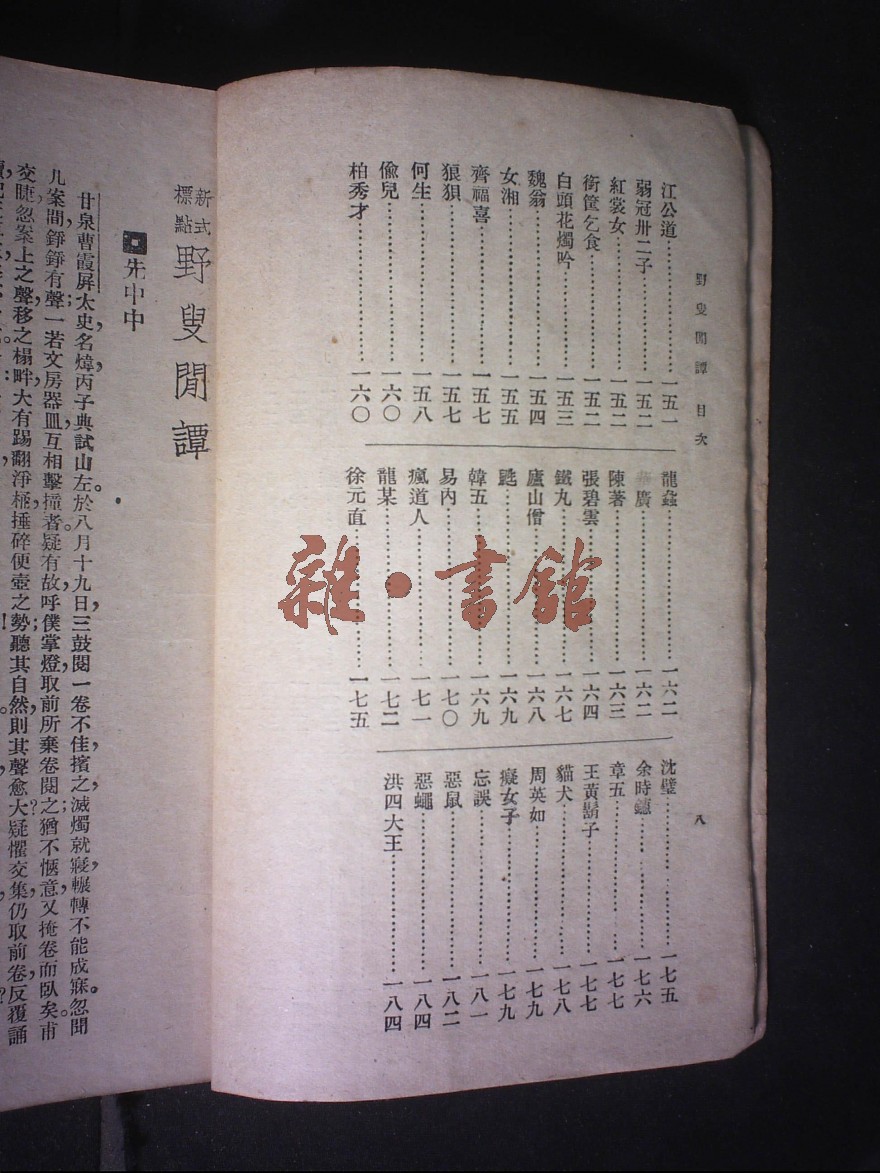 野叟閒譚 目次
八
江公道……一五一
弱冠卅二子……一五二
紅裳女……一五二
銜筐乞食……一五二
白頭花燭吟……一五三
魏翁……一五四
女湘……一五五
齊福喜……一五七
狼狽……一五七
何生……一五八
偸兒……一六〇
柏秀才……一六〇
龍蟄……一六二
廣……一六二
陳著……一六三
張碧雲……一六四
鐵丸……一六七
廬山僧……一六八
……一六九
韓五……一六九
易內……一七〇
瘋道人……一七一
龍某……一七二
徐元直……一七五
沈璧……一七五
余時……一七六
章五……一七七
王黃鬍子……一七七
貓犬……一七八
周英如……一七九
癡女子……一七九
忘誤……一八一
惡鼠……一八二
惡蠅……一八四
洪四大王……一八四
雜·書館
新式標點 野叟閒譚
朱中中
甘泉曹霞屏太史名煒丙子典試山左於八月十九日，三鼓閱一卷不佳，擯之；滅燭就寢，輾轉不能成寐。忽聞
几案間，錚錚有聲，一若文房器皿，互相擊撞者。疑有故，呼僕掌燈，取前所棄卷閱之，猶不愜意，又掩卷而臥矣。甫
交睫，忽案上之聲，移之榻畔，大有踢翻淨桶，捶碎便壺之勢；聽其自然，則其聲愈大，疑懼交集，仍取前卷，反覆誦